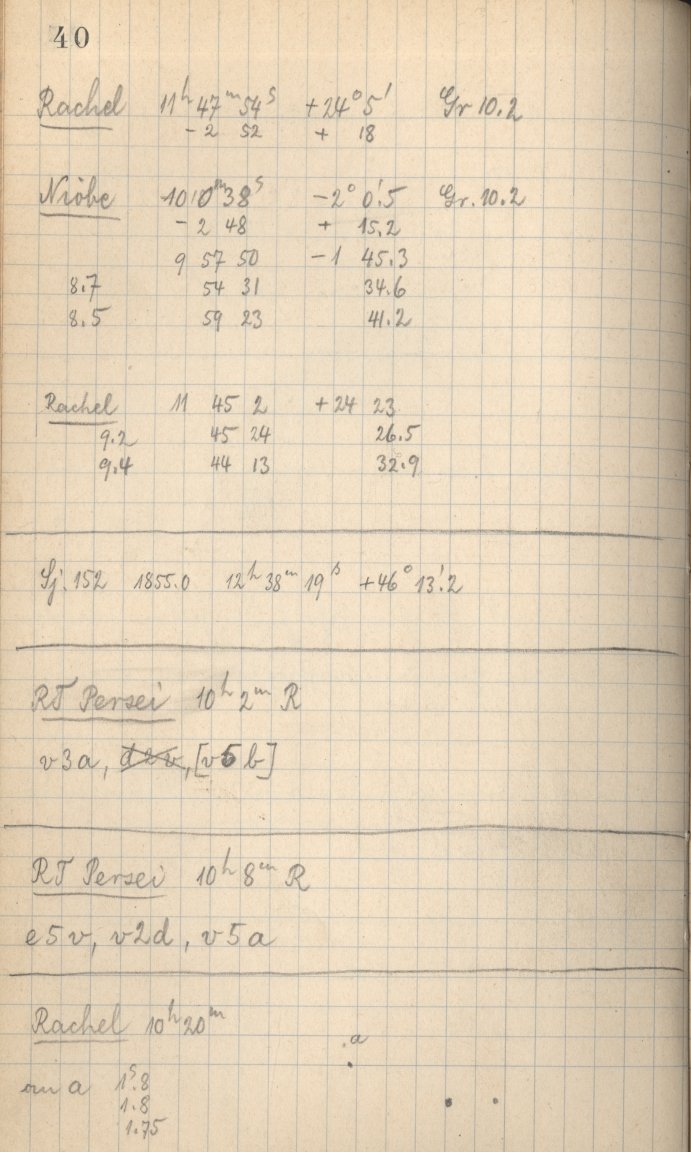 40
Rachel 11ʰ 47ᵐ 54ˢ +24° 5' Gr 10.2
- 2 52 + 18
Niobe 10ʰ 0ᵐ 38ˢ -2° 0'.5 Gr. 10.2
- 2 48 + 15.2
9 57 50 -1 45.3
8.7 54 31 34.6
8.5 59 23 41.2
Rachel 11 45 2 +24 23
9.2 45 24 26.5
9.4 44 13 32.9
Sj. 152 1855.0 12ʰ 38ᵐ 19ˢ +46° 13'.2
RT Persei 10ʰ 2ᵐ R
v3a, d2v, [v5b]
RT Persei 10ʰ 8ᵐ R
e5v, v2d, v5a
Rachel 10ʰ 20ᵐ
a
a 1ˢ.8
1.8
1.75